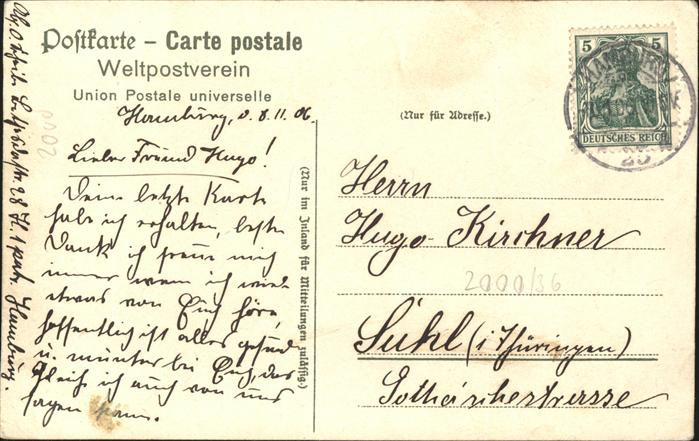 Postkarte – Carte postale
Weltpostverein
Union Postale universelle
Hamburg, d. 8.11.06.
Lieber Freund Hugo!
Deine letzte Karte
habe ich erhalten, besten
Dank ich freue mich
immer wenn ich wieder
etwas von Euch höre,
hoffentlich ist alles gesund
u. munter bei Euch, das
gleich ich auch von uns
sagen kann.
(Nur im Inland für Mitteilungen zulässig)
(Nur für Adresse.)
5 5
DEUTSCHES REICH
HAMBURG
25
Herrn
Hugo Kirchner
2000/36
Suhl (i Thüringen)
Gothaischestrasse
2000
28 II. 1 Hamburg.